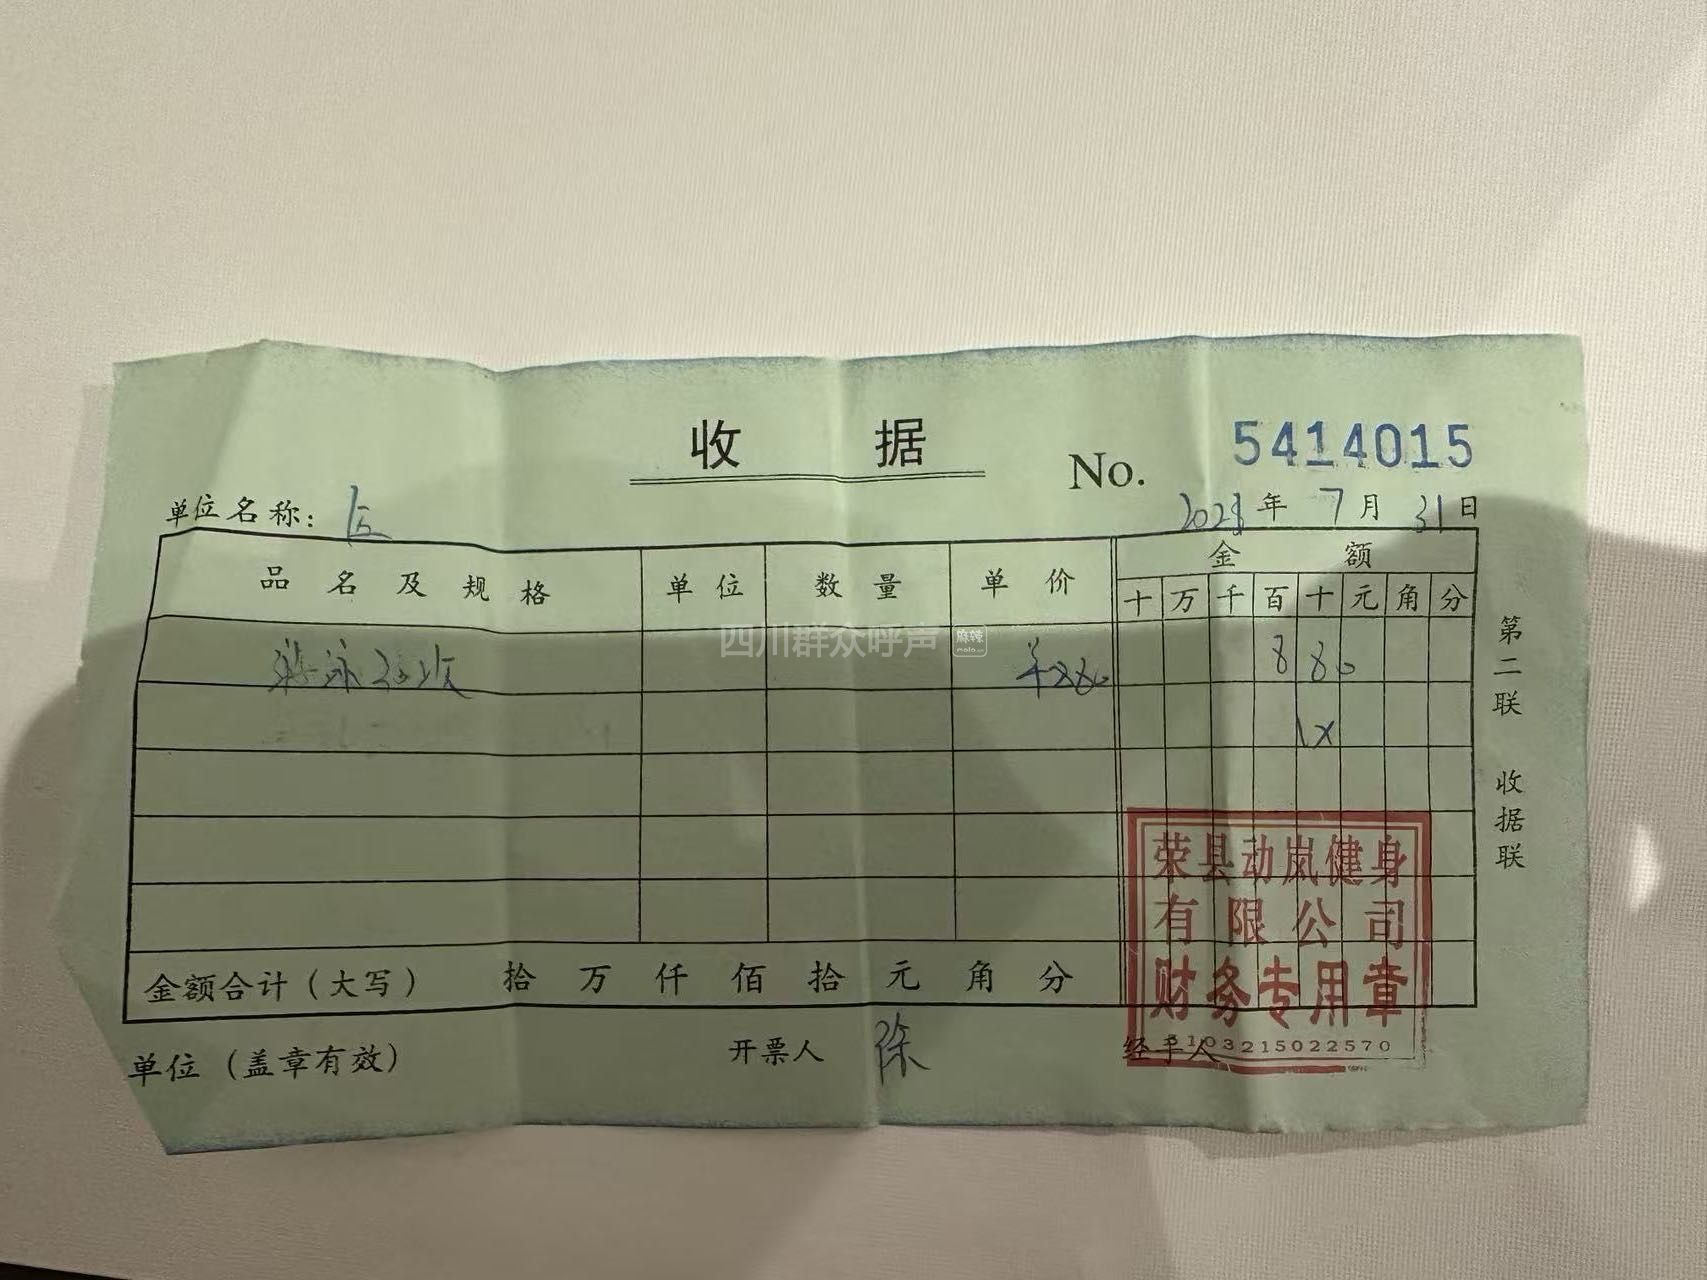 收 据
No. 5414015
单位名称: 伍
年 7 月 31 日
品名及规格 单位 数量 单价 金额
十 万 千 百 十 元 角 分
游泳 880
四川群众呼声 麻辣 mala.cn
荣县动岚健身
有限公司
财务专用章
5103215022570
金额合计(大写) 拾 万 仟 佰 拾 元 角 分
单位(盖章有效) 开票人 徐 经手人
第二联 收据联